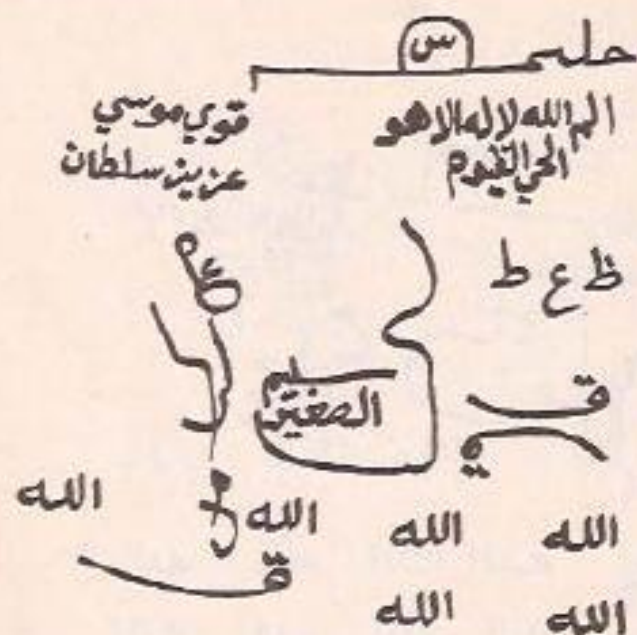 حليم س
الم الله لا اله الا هو
الحي القيوم
قوي موسي
عزيز سلطان
ظ ع ط
سليم
الصغير
الله الله الله الله
الله الله